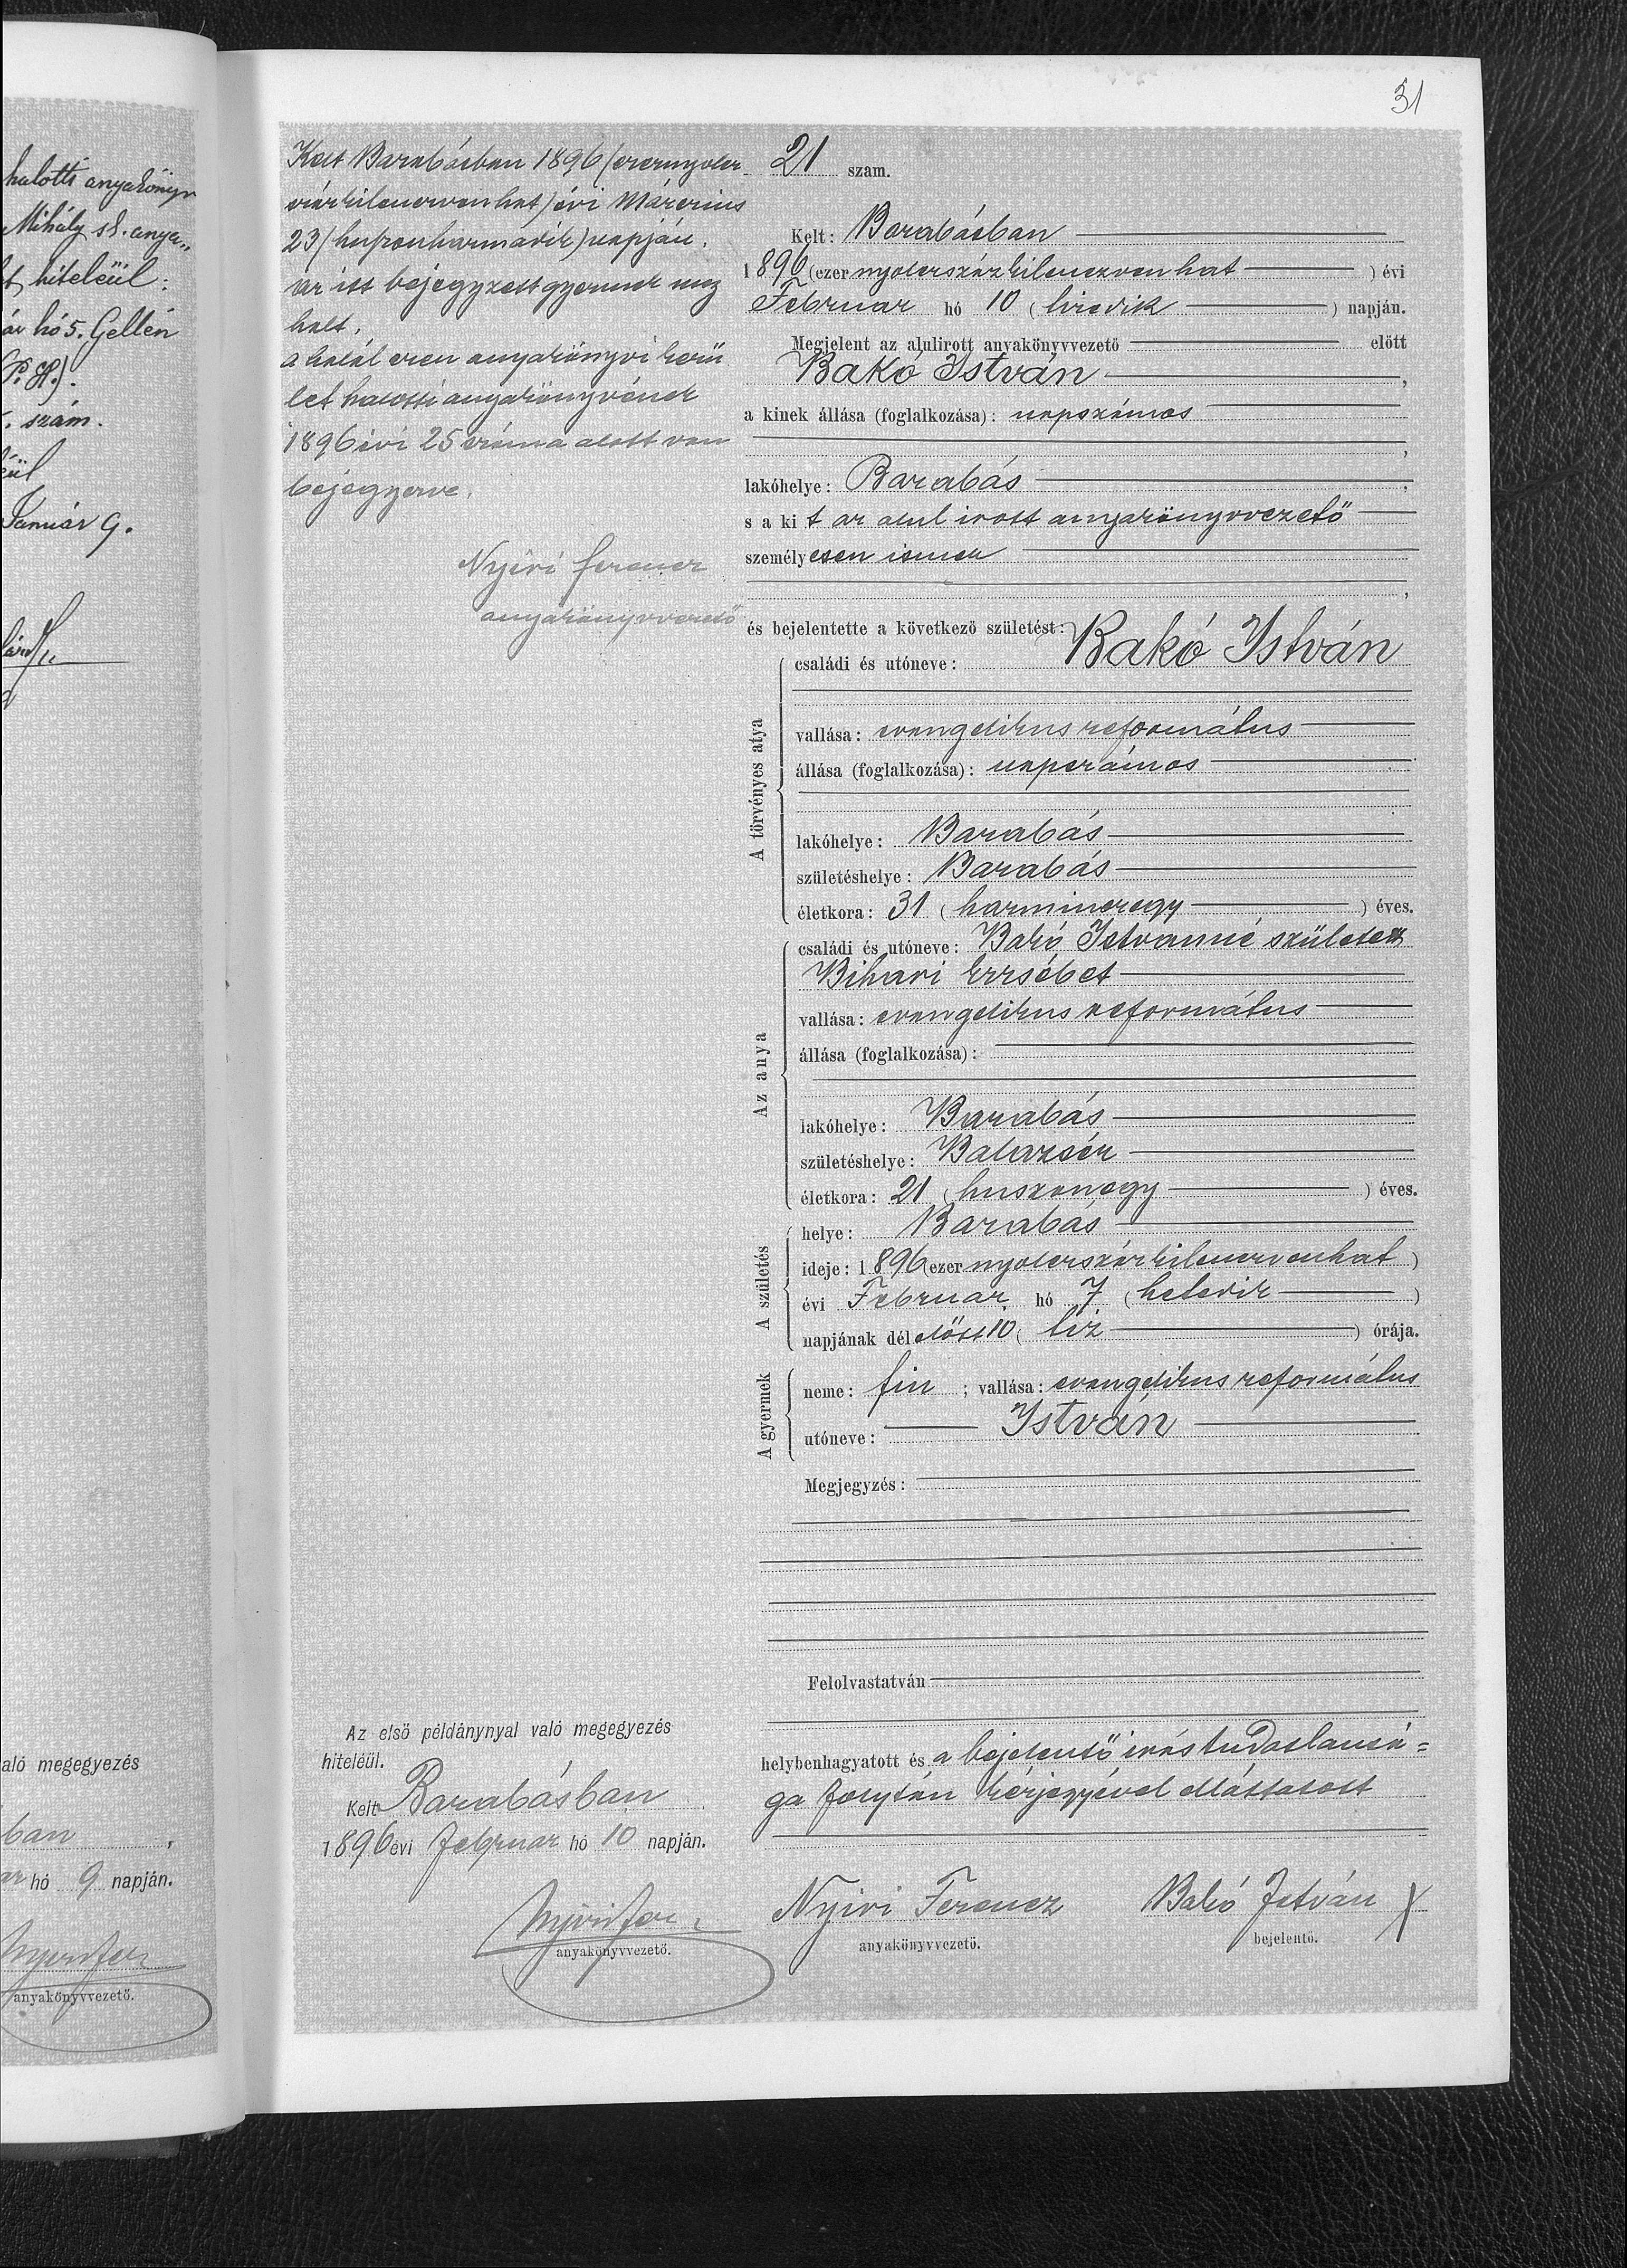 halotti anyakönyv
Mihály s k. anya„
hiteléül:
ár hó 5. Gellén
(P. H.).
szám.
Január 9.
aló megegyezés
ban
ar hó 9 napján.
anyakönyvvezető.
31
Kelt Barabásban 1896 (ezernyolcz
százkilenczvenhat) évi Márczius
23 (huszonharmadik) napján.
az itt bejegyzett gyermek meg
halt.
a halál ezen anyakönyvi kerü
let halotti anyakönyvének
1896 évi 25 száma alatt van
bejegyezve.
Nyíri Ferencz
anyakönyvvezető
Az első példánynyal való megegyezés
hiteléül.
Kelt Barabásban
1896 évi Február hó 10 napján.
Nyíri Fer
anyakönyvvezető.
21 szám.
Kelt: Barabásban
1896 (ezer nyolczszázkilenczvenhat) évi
Február hó 10 (tizedik) napján.
Megjelent az alulirott anyakönyvvezető előtt
Bakó István,
a kinek állása (foglalkozása): napszámos
,
lakóhelye: Barabás,
s a kit az alul irott anyakönyvvezető
személyesen ismer
,
és bejelentette a következő születést:
A törvényes atya
családi és utóneve: Bakó István
vallása: evangelikus református
állása (foglalkozása): napszámos
lakóhelye: Barabás
születéshelye: Barabás
életkora: 31 (harminczegy) éves.
Az anya
családi és utóneve: Bakó Istvanné született
Bihari Erzsébet
vallása: evangelikus református
állása (foglalkozása):
lakóhelye: Barabás
születéshelye: Balazsér
életkora: 21 (huszonegy) éves.
A születés
helye: Barabás
ideje: 1896 (ezer nyolczszázkilenczvenhat)
évi Február hó 7 (hetedik)
napjának délelőtt 10 (tiz) órája.
A gyermek
neme: fiu; vallása: evangelikus református
utóneve: István
Megjegyzés:
Felolvastatván
helybenhagyatott és a bejelentő irástudatlansá=
ga folytán kézjegyével elláttatott
Nyiri Ferencz Bakó István X
anyakönyvvezető. bejelentő.